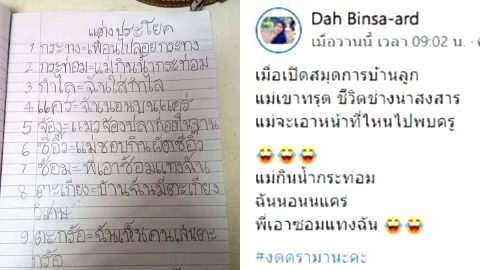 แต่งประโยค
1 กระทง=เพื่อนไปลอยกระทง
2 กระท่อม=แม่กินน้ำกระท่อม
3 กำไล=ฉันใส่กำไล
4 แคร่=ฉันนอนบนแคร่
5 จ้อง=แมวจ้องปลาที่อยู่ในจาน
6 ซีอิ๊ว=แม่ชอบกินผัดซีอิ๊ว
7 ซ้อม=พี่เอาซ้อมแทงฉัน
8 ตะเกียง=บ้านฉันมีตะเกียง
วิเศษ
9. ตะกร้อ=ฉันเห็นคนเล่นตะ
กร้อ
Dah Binsa-ard
เมื่อวานนี้ เวลา 09:02 น.
เมื่อเปิดสมุดการบ้านลูก
แม่เขาทรุด ชีวิตช่างน่าสงสาร
แม่จะเอาหน้าที่ไหนไปพบครู
แม่กินน้ำกระท่อม
ฉันนอนนแคร่
พี่เอาซอมแทงฉัน
#งดดรามานะคะ